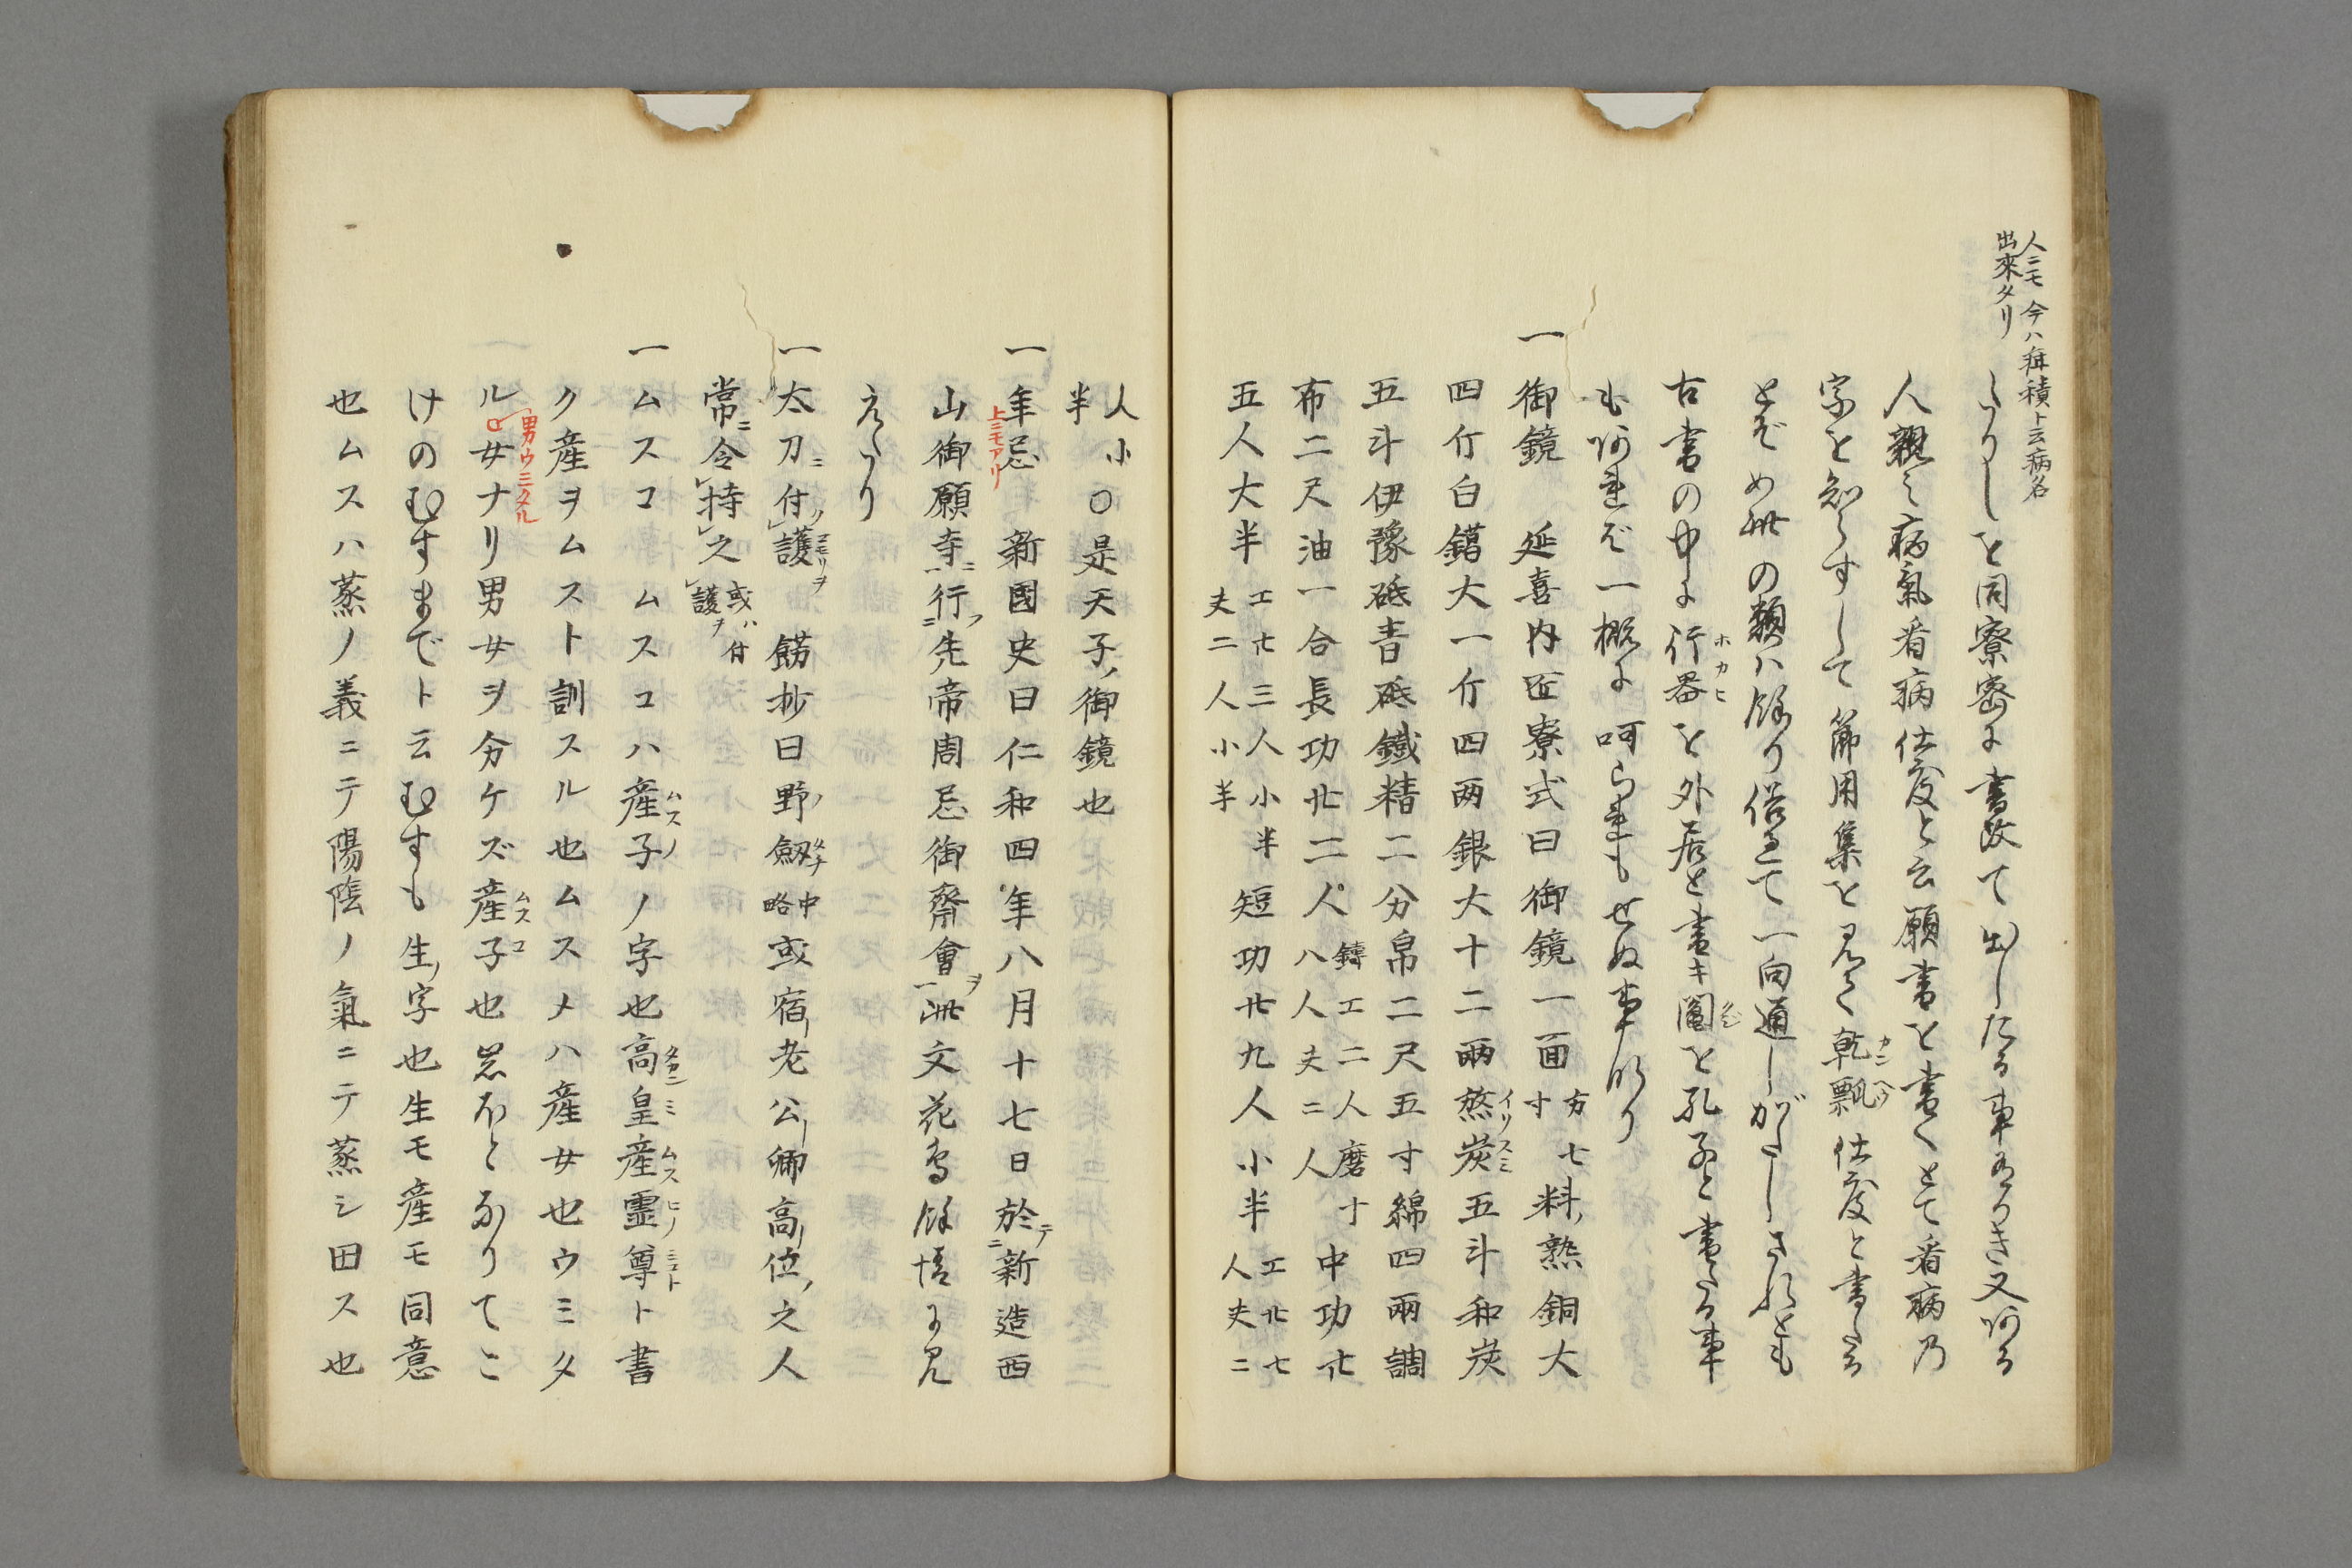 人ニモ今ハ疳積ト云病名
出來タリ
たりしを同寮密に書改て出したる事ありき又ある
人親之病氣看病仕度と云願書を書くとて看病乃
字を知らすして節用集を見て乾瓢仕度と書たる
カンヘウ
とぞめ此の類ハ餘り俗にて一向通しがたしされとも
古書の中に行器を外居と書キ圖を孔子と書たる事
ホカヒ
もあれば一概に呵られもせぬ事なり
一御鏡 延喜内匠寮式曰御鏡一面方七寸料熟銅大
四斤白鑞大一斤四両銀大十二両熬炭五斗和炭
イリスミ
五斗伊豫砥青砥鐵精二分帛二尺五寸綿四両調
布二尺油一合長功廿二人鑄工二人磨八人夫二人中功廿
五人大半工廿三人小半夫二人小半短功廿九人小半工廿七人夫二
人小半〇是天子ノ御鏡也
一年忌 新國史曰仁和四年八月十七日於新造西
上ニモアリ
山御願寺ニ行フ先帝周忌御齋會ヲ此文花鳥餘情に見
えたり
一太刀ニ付護 餝抄曰野劔中略或宿老公卿高位之人
マモリヲ
常ニ令持之或ハ付護ヲ
一ムスコ ムスコハ産子ノ字也高皇産靈尊ト書
ムスノ タカミ ムスヒノミコト
ク産ヲムスト訓スル也ムスメハ産女也ウミタ
ル女ナリ男女ヲ分ケズ産子也苔などありてこ
男ウミタル
ムスコ
けのむすまでト云むすも生ノ字也生モ産モ同意
也ムスハ蒸ノ義ニテ陽陰ノ氣ニテ蒸シ田ス也